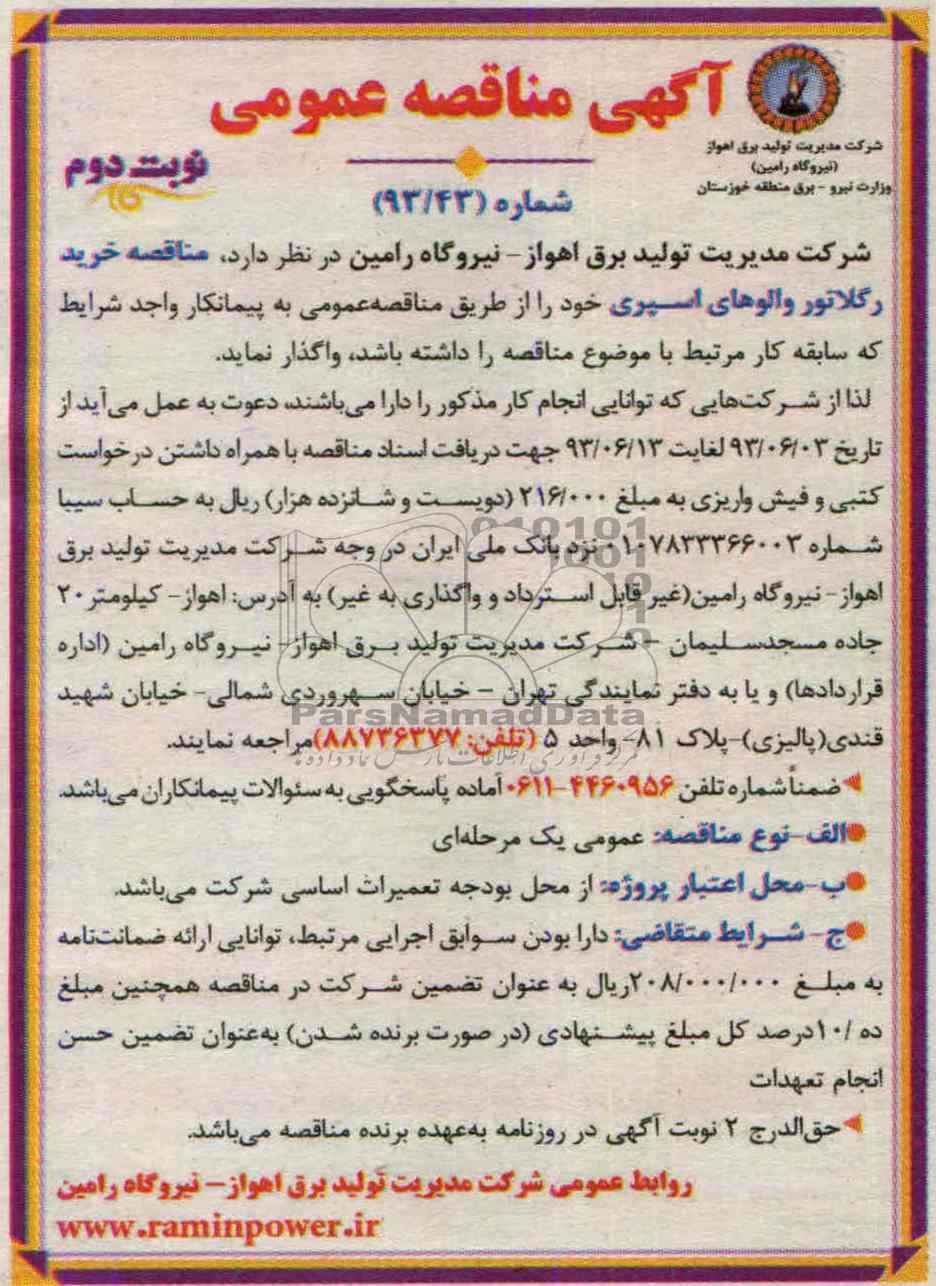 آگهی مناقصه عمومی
شرکت مدیریت تولید برق اهواز
(نیروگاه رامین)
وزارت نیرو - برق منطقه خوزستان
نوبت دوم
شماره (۹۳/۴۳)
شرکت مدیریت تولید برق اهواز - نیروگاه رامین در نظر دارد، مناقصه خرید
رگلاتور والوهای اسپری خود را از طریق مناقصه‌عمومی به پیمانکار واجد شرایط
که سابقه کار مرتبط با موضوع مناقصه را داشته باشد، واگذار نماید.
لذا از شرکت‌هایی که توانایی انجام کار مذکور را دارا می‌باشند، دعوت به عمل می‌آید از
تاریخ ۹۳/۰۶/۰۳ لغایت ۹۳/۰۶/۱۳ جهت دریافت اسناد مناقصه با همراه داشتن درخواست
کتبی و فیش واریزی به مبلغ ۲۱۶/۰۰۰ (دویست و شانزده هزار) ریال به حساب سیبا
شماره ۰۱۰۷۸۳۳۳۶۶۰۰۳ نزد بانک ملی ایران در وجه شرکت مدیریت تولید برق
اهواز - نیروگاه رامین(غیر قابل استرداد و واگذاری به غیر) به آدرس: اهواز - کیلومتر ۲۰
جاده مسجدسلیمان - شرکت مدیریت تولید برق اهواز - نیروگاه رامین (اداره
قراردادها) و یا به دفتر نمایندگی تهران - خیابان سهروردی شمالی- خیابان شهید
قندی(پالیزی)-پلاک ۸۱- واحد ۵ (تلفن: ۸۸۷۳۶۳۷۷)مراجعه نمایند.
ضمناً شماره تلفن ۴۴۶۰۹۵۶-۰۶۱۱ آماده پاسخگویی به سئوالات پیمانکاران می‌باشد.
الف-نوع مناقصه: عمومی یک مرحله‌ای
ب-محل اعتبار پروژه: از محل بودجه تعمیرات اساسی شرکت می‌باشد.
ج- شرایط متقاضی: دارا بودن سوابق اجرایی مرتبط، توانایی ارائه ضمانت‌نامه
به مبلغ ۲۰۸/۰۰۰/۰۰۰ریال به عنوان تضمین شرکت در مناقصه همچنین مبلغ
ده /۱۰درصد کل مبلغ پیشنهادی (در صورت برنده شدن) به‌عنوان تضمین حسن
انجام تعهدات
حق‌الدرج ۲ نوبت آگهی در روزنامه به‌عهده برنده مناقصه می‌باشد.
روابط عمومی شرکت مدیریت تولید برق اهواز - نیروگاه رامین
www.raminpower.ir
ParsNamadData